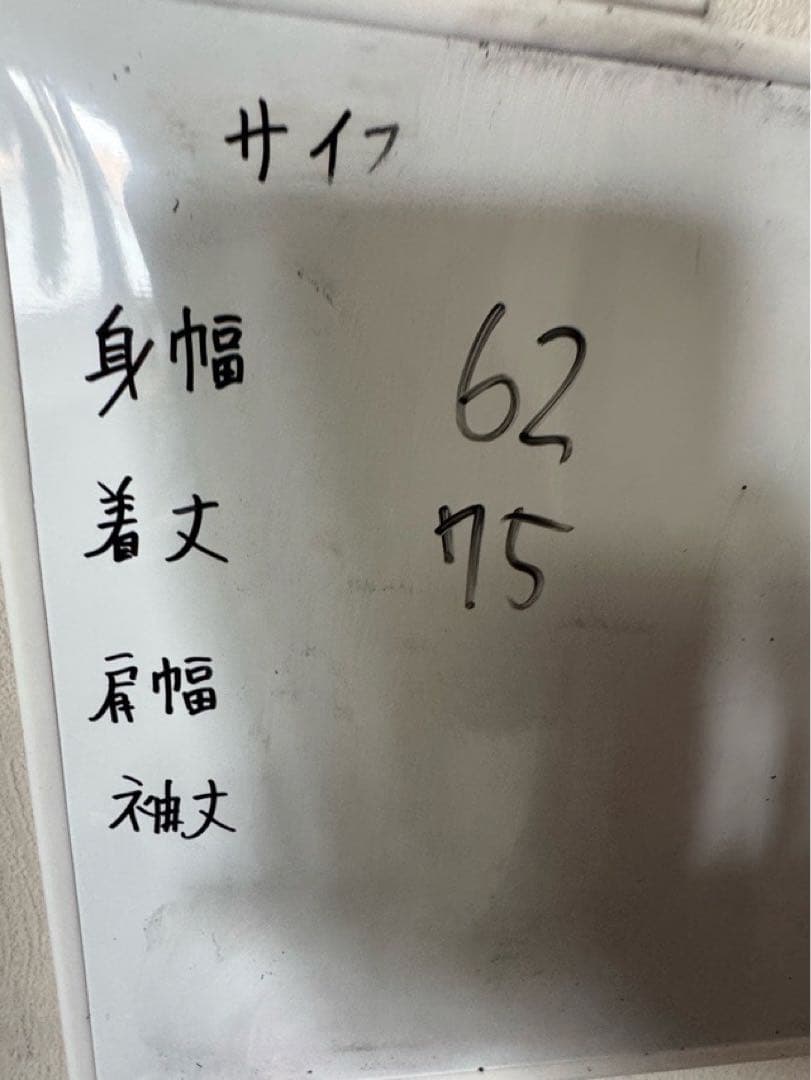 サイズ
身幅 62
着丈 75
肩幅
袖丈